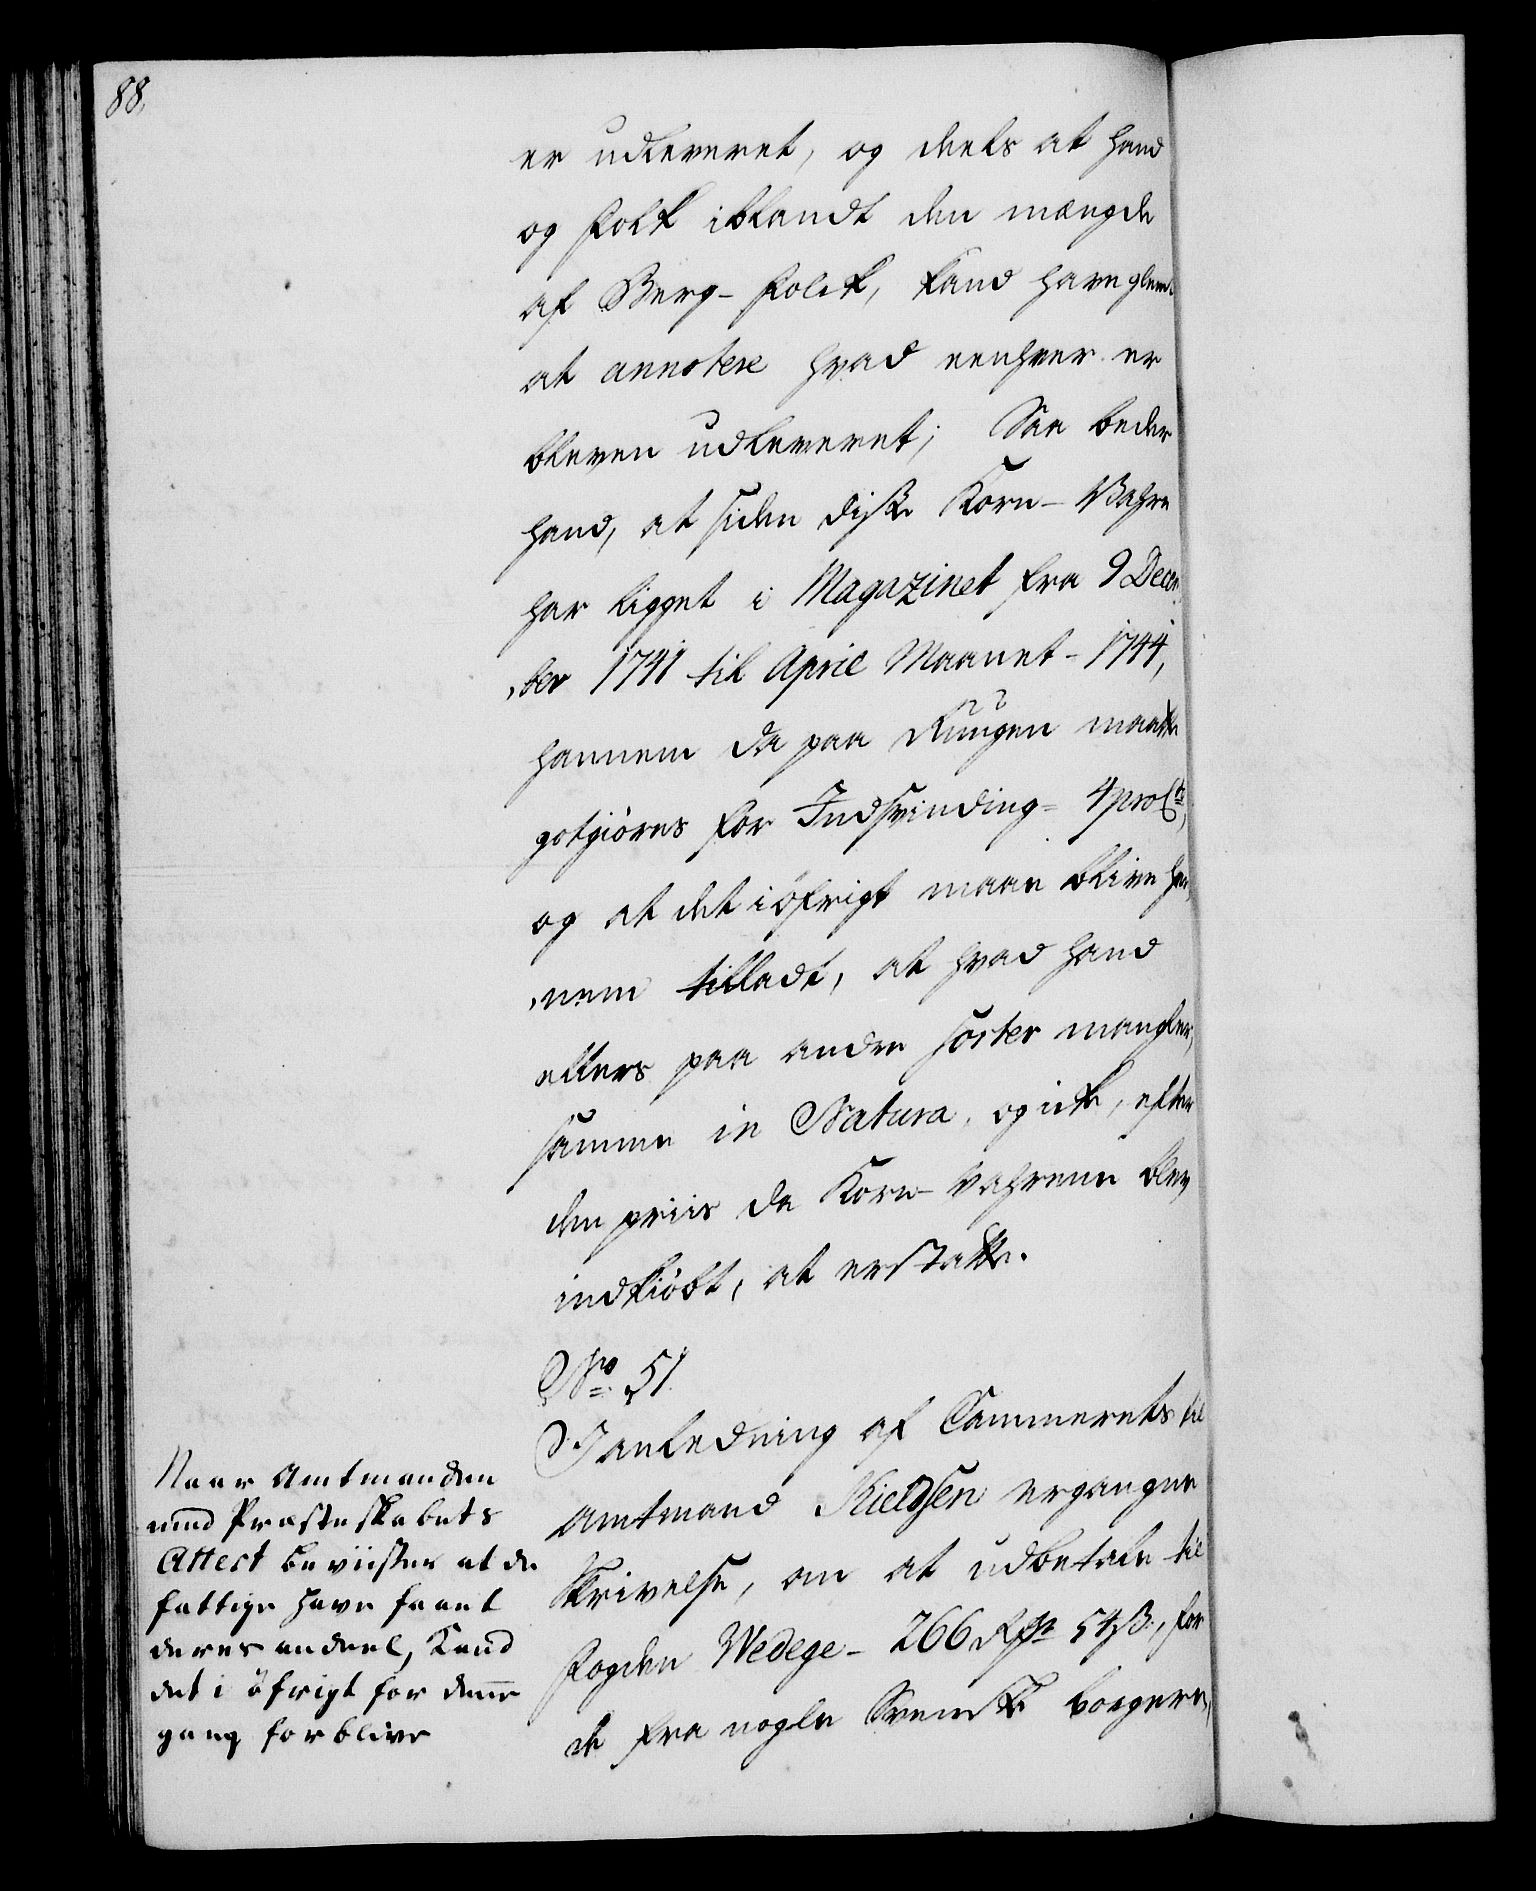 88.
er udleveret, og deels at hand
og Folk iblandt den mængde
af Berg-Folck, kand have glemt
at annotere hvad eenhver er
bleven udleveret; Saa beder
hand, at siden disse Korn-Vahre
har ligget i Magazinet fra 9 Decem¬
,ber 1741 til April Maanet-1744,
hannem da paa Rugen maatte
gotgiøres for Indsvinding= 4 proCt,
og at det iøfrigt maae blive han¬
,nem tilladt, at hvad hand
ellers paa andre sorter mangler,
samme in Natura, og ick, efter
den priis de Korn-Vahrene blev
indkiøbt, at erstatte.
No. 51.
I anledning af Cammerets til
Amtmand Kieldsen ergangne
Skrivelse, om at udbetale til
Fogden Wedege- 266 Rdr 54 ß., for
de fra nogle Svenske borgere,
Naar Amtmanden
med Præsteskabets
Attest beviiser at de
fattige have faaet
deres andeel, Kand
det i øfrigt for denne
gang forblive